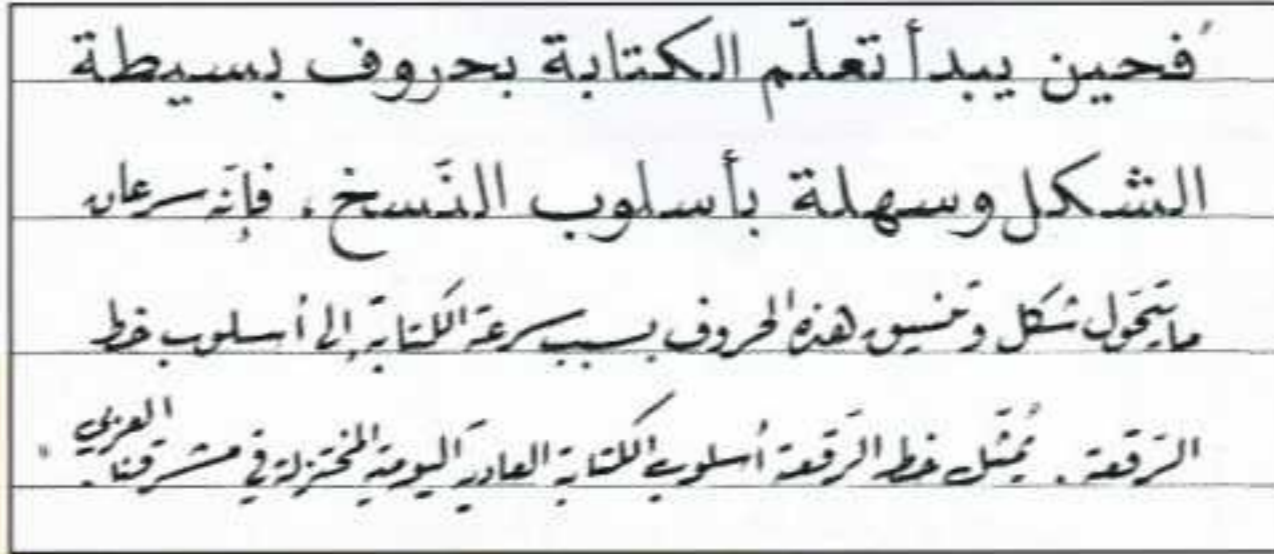 "فحين يبدأ تعلّم الكتابة بحروف بسيطة
الشكل وسهلة بأسلوب النَسخ، فإنَه سرعان
ما يتحَول شكل وتنسيق هذه الحروف بسبب سرعة الكتابة إلى أسلوب خط
الرَقعة. يُمثَل خط الرَقعة أسلوب الكتابة العاديَة اليومية المختزلة في مشرقنا العربي."